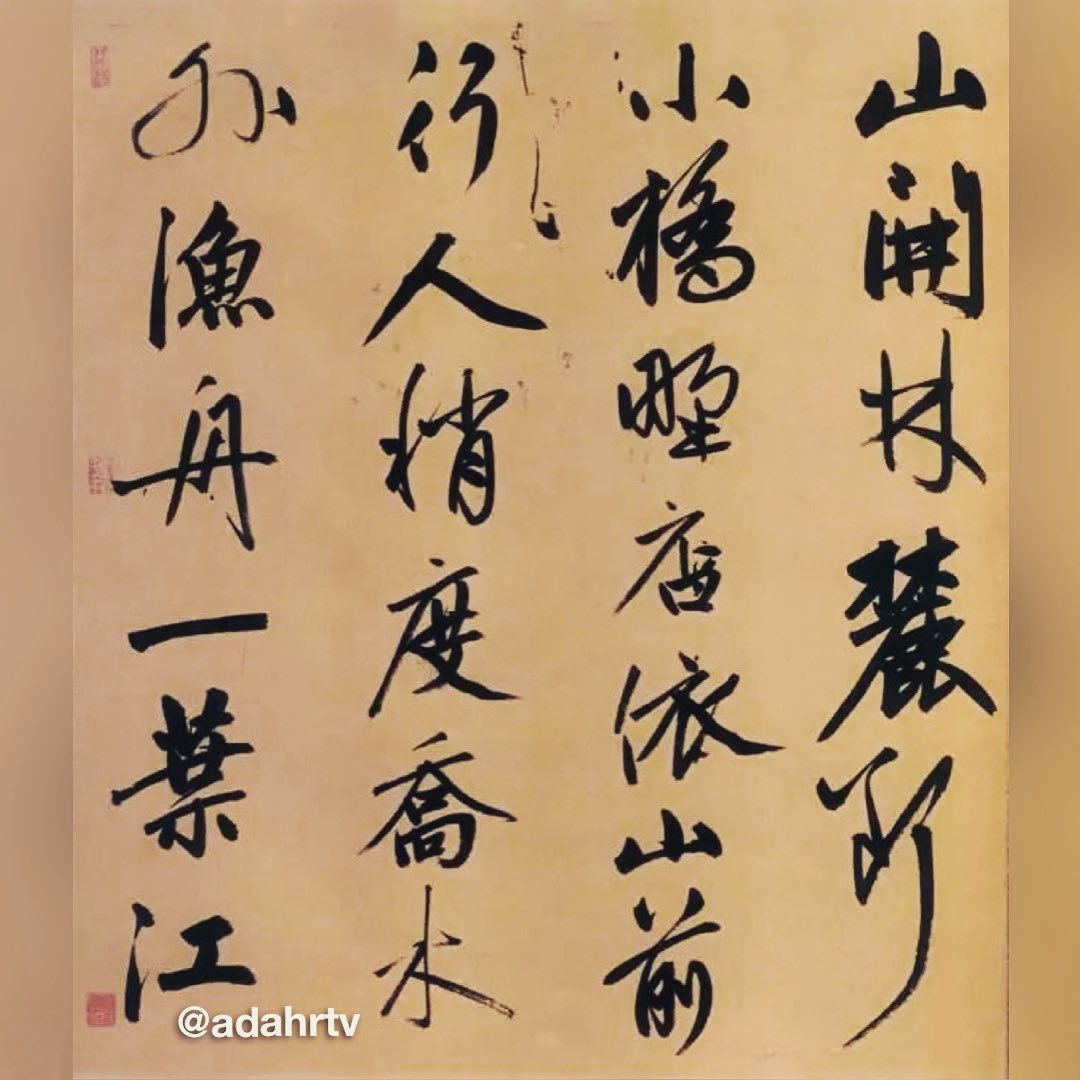 山開林麓斷
小橋野店依山前
行人稍度喬木
外漁舟一葉江
@adahrtv